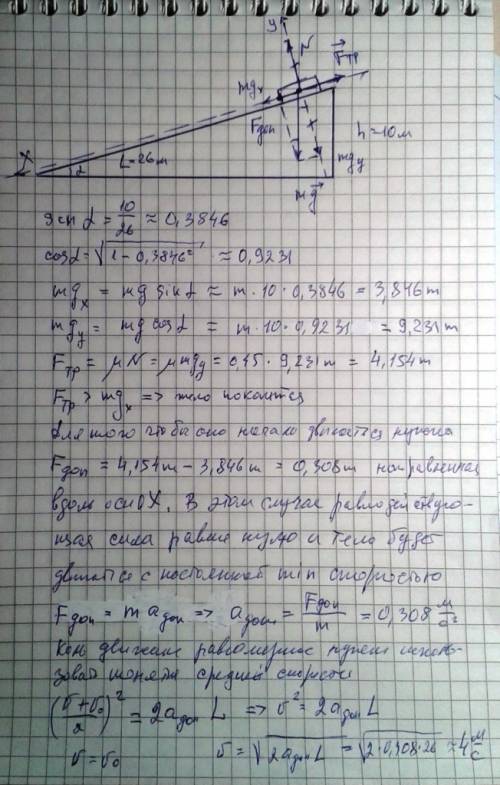 y
N
F тр
mg x
F доп
h = 10 м
X
α
L = 26 м
mg y
mg
sin α = 10/26 ≈ 0,3846
cos α = √(1 - 0,3846²) ≈ 0,9231
mg x = mg sin α ≈ m · 10 · 0,3846 = 3,846 m
mg y = mg cos α = m · 10 · 0,9231 = 9,231 m
F тр = μN = μmg y = 0,45 · 9,231 m = 4,154 m
F тр > mg x => тело покоится
Для того чтобы оно начало двигаться нужна
F доп = 4,154 m - 3,846 m = 0,308 m направленная
вдоль оси OX. В этом случае равнодействую-
щая сила равна нулю и тело будет
двигаться с постоянной min скоростью
F доп = m a доп => a доп = F доп / m = 0,308 м/с²
движение равномерное нужно исполь-
зовать средней скорости
((v + v₀)/2)² = 2a доп L => v² = 2a доп L
v = v₀ v = √(2a доп L) = √(2 · 0,308 · 26) ≈ 4 м/с